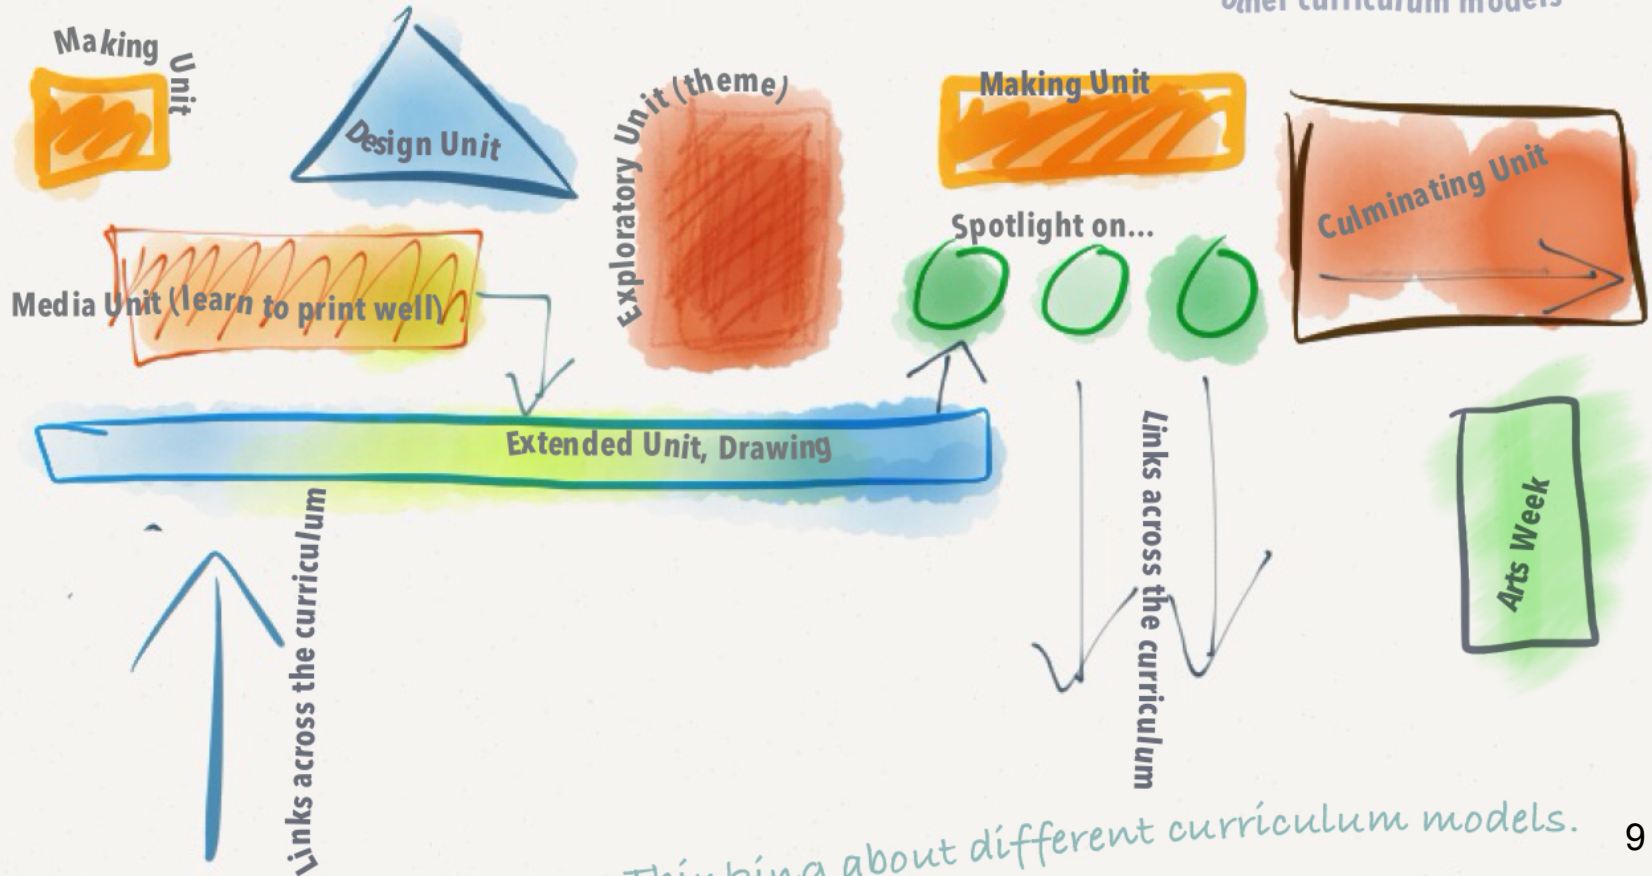 other curriculum models
Making Unit
Design Unit
Exploratory Unit (theme)
Making Unit
Culminating Unit
Spotlight on...
Media Unit (learn to print well)
Extended Unit, Drawing
Links across the curriculum
Links across the curriculum
Arts Week
Thinking about different curriculum models.
9